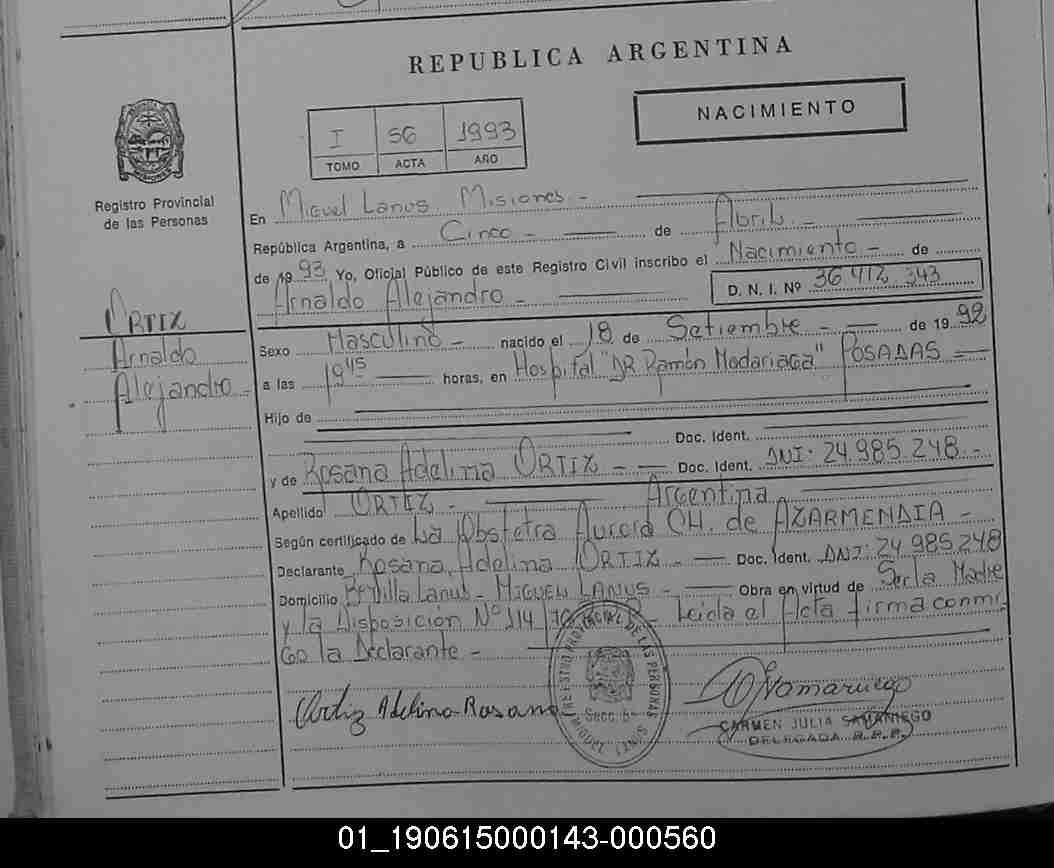 REPUBLICA ARGENTINA
NACIMIENTO
I 56 1993
TOMO ACTA AÑO
Registro Provincial
de las Personas
En Miguel Lanus Misiones -
República Argentina, a Cinco - de Abril -
de 1993 Yo, Oficial Público de este Registro Civil inscribo el Nacimiento - de
Arnaldo Alejandro - D. N. I. Nº 36.412.343
ORTIZ
Arnaldo
Alejandro -
Sexo Masculino - nacido el 18 de Setiembre - de 1992
a las 19 45 horas, en Hospital "DR. Ramón Madariaga" POSADAS
Hijo de
Doc. Ident.
y de Rosana Adelina ORTIZ - Doc. Ident. DNI: 24.985.248 -
Apellido ORTIZ - Argentina
Según certificado de La Obstetra Aurora CH. de AZARMENDIA -
Declarante Rosana Adelina ORTIZ - Doc. Ident. DNI: 24.985.248
Domicilio Lanus - MIGUEL LANUS - Obra en virtud de Ser la Madre
y la Disposición Nº 114 Leida el Acta firma conmi
go la Declarante -
REGISTRO PROVINCIAL DE LAS PERSONAS
Ortiz Adelina Rosana
CARMEN JULIA SAMANIEGO
DELEGADA R.P.P.
01_190615000143-000560